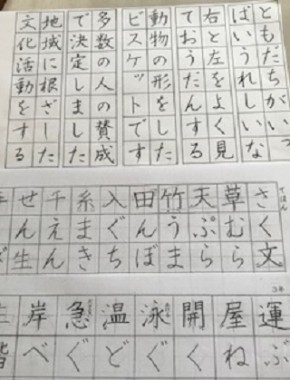 ともだちがいっ
ぱいうれしいな
右と左をよく見
ておうだんする
動物の形をした
ビスケットです
多数の人の賛成
で決定しました
地域に根ざした
文化活動をする
てほん
さく文
草むら
天ぷら
竹うま
田んぼ
入ぐち
糸まき
千えん
せん生
運ぶ
屋ね
開く
泳ぐ
温ど
急ぐ
岸べ